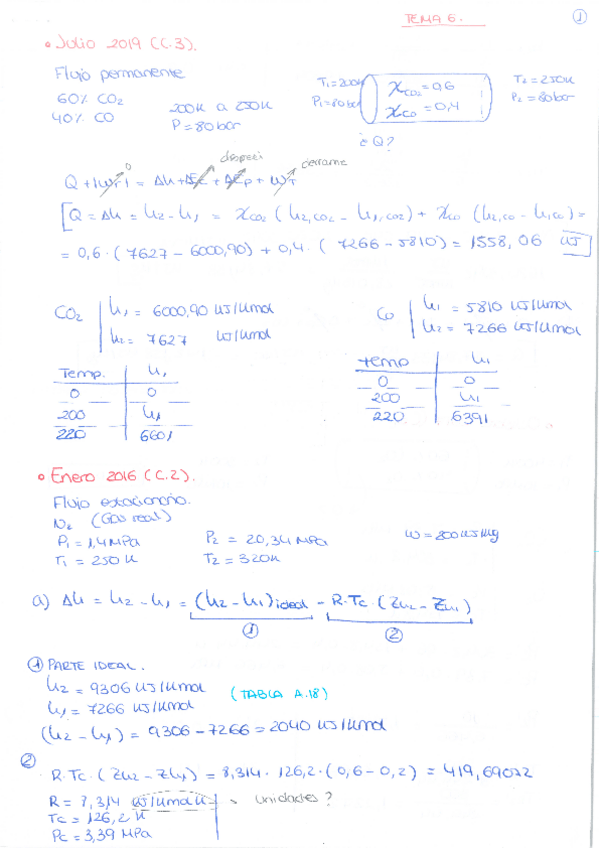 TEMA 6. ①
• Julio 2019 (C.3).
Flujo permanente
60% CO2
40% CO
200K a 250K
P=80bar
T1=200K
P1=80bar
xCO2=0,6
xCO=0,4
T2=250K
P2=80bar
¿Q?
0 despreci cerrame
Q + |Wf| = Δh + ΔEc + ΔEp + WT
[Q = Δh = h2 - h1 = xCO2 (h2,CO2 - h1,CO2) + xCO (h2,CO - h1,CO) =
= 0,6 · (7627 - 6000,90) + 0,4 · (7266 - 5810) = 1558,06 KJ
CO2 h1 = 6000,90 KJ/Kmol
h2 = 7627 KJ/Kmol
CO h1 = 5810 KJ/Kmol
h2 = 7266 KJ/Kmol
Temp. h1
0 0
200 h1
220 6601
temp h1
0 0
200 h1
220 6391
• Enero 2016 (C.2).
Flujo estacionario.
N2 (Gas real)
P1 = 1,4 MPa P2 = 20,34 MPa W = 200 KJ/Kg
T1 = 250 K T2 = 320K
a) Δh = h2 - h1 = (h2 - h1)ideal - R·Tc·(Zh2 - Zh1)
① ②
① PARTE IDEAL.
h2 = 9306 KJ/Kmol
h1 = 7266 KJ/Kmol (TABLA A.18)
(h2 - h1) = 9306 - 7266 = 2040 KJ/Kmol
②
R·Tc·(Zh2 - Zh1) = 8,314 · 126,2 · (0,6 - 0,2) = 419,69072
R = 8,314 KJ/Kmol K → unidades?
Tc = 126,2 K
Pc = 3,39 MPa